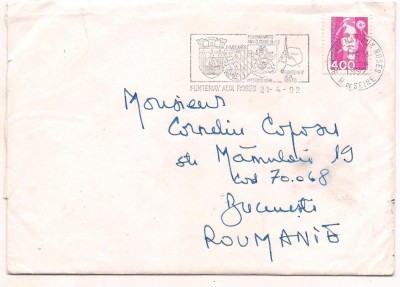 FONTENAY AUX ROSES 21-4-92
4,00
Monsieur
Corneliu Coposu
str Mămulari 19
Cod 70.068
București
ROUMANIE